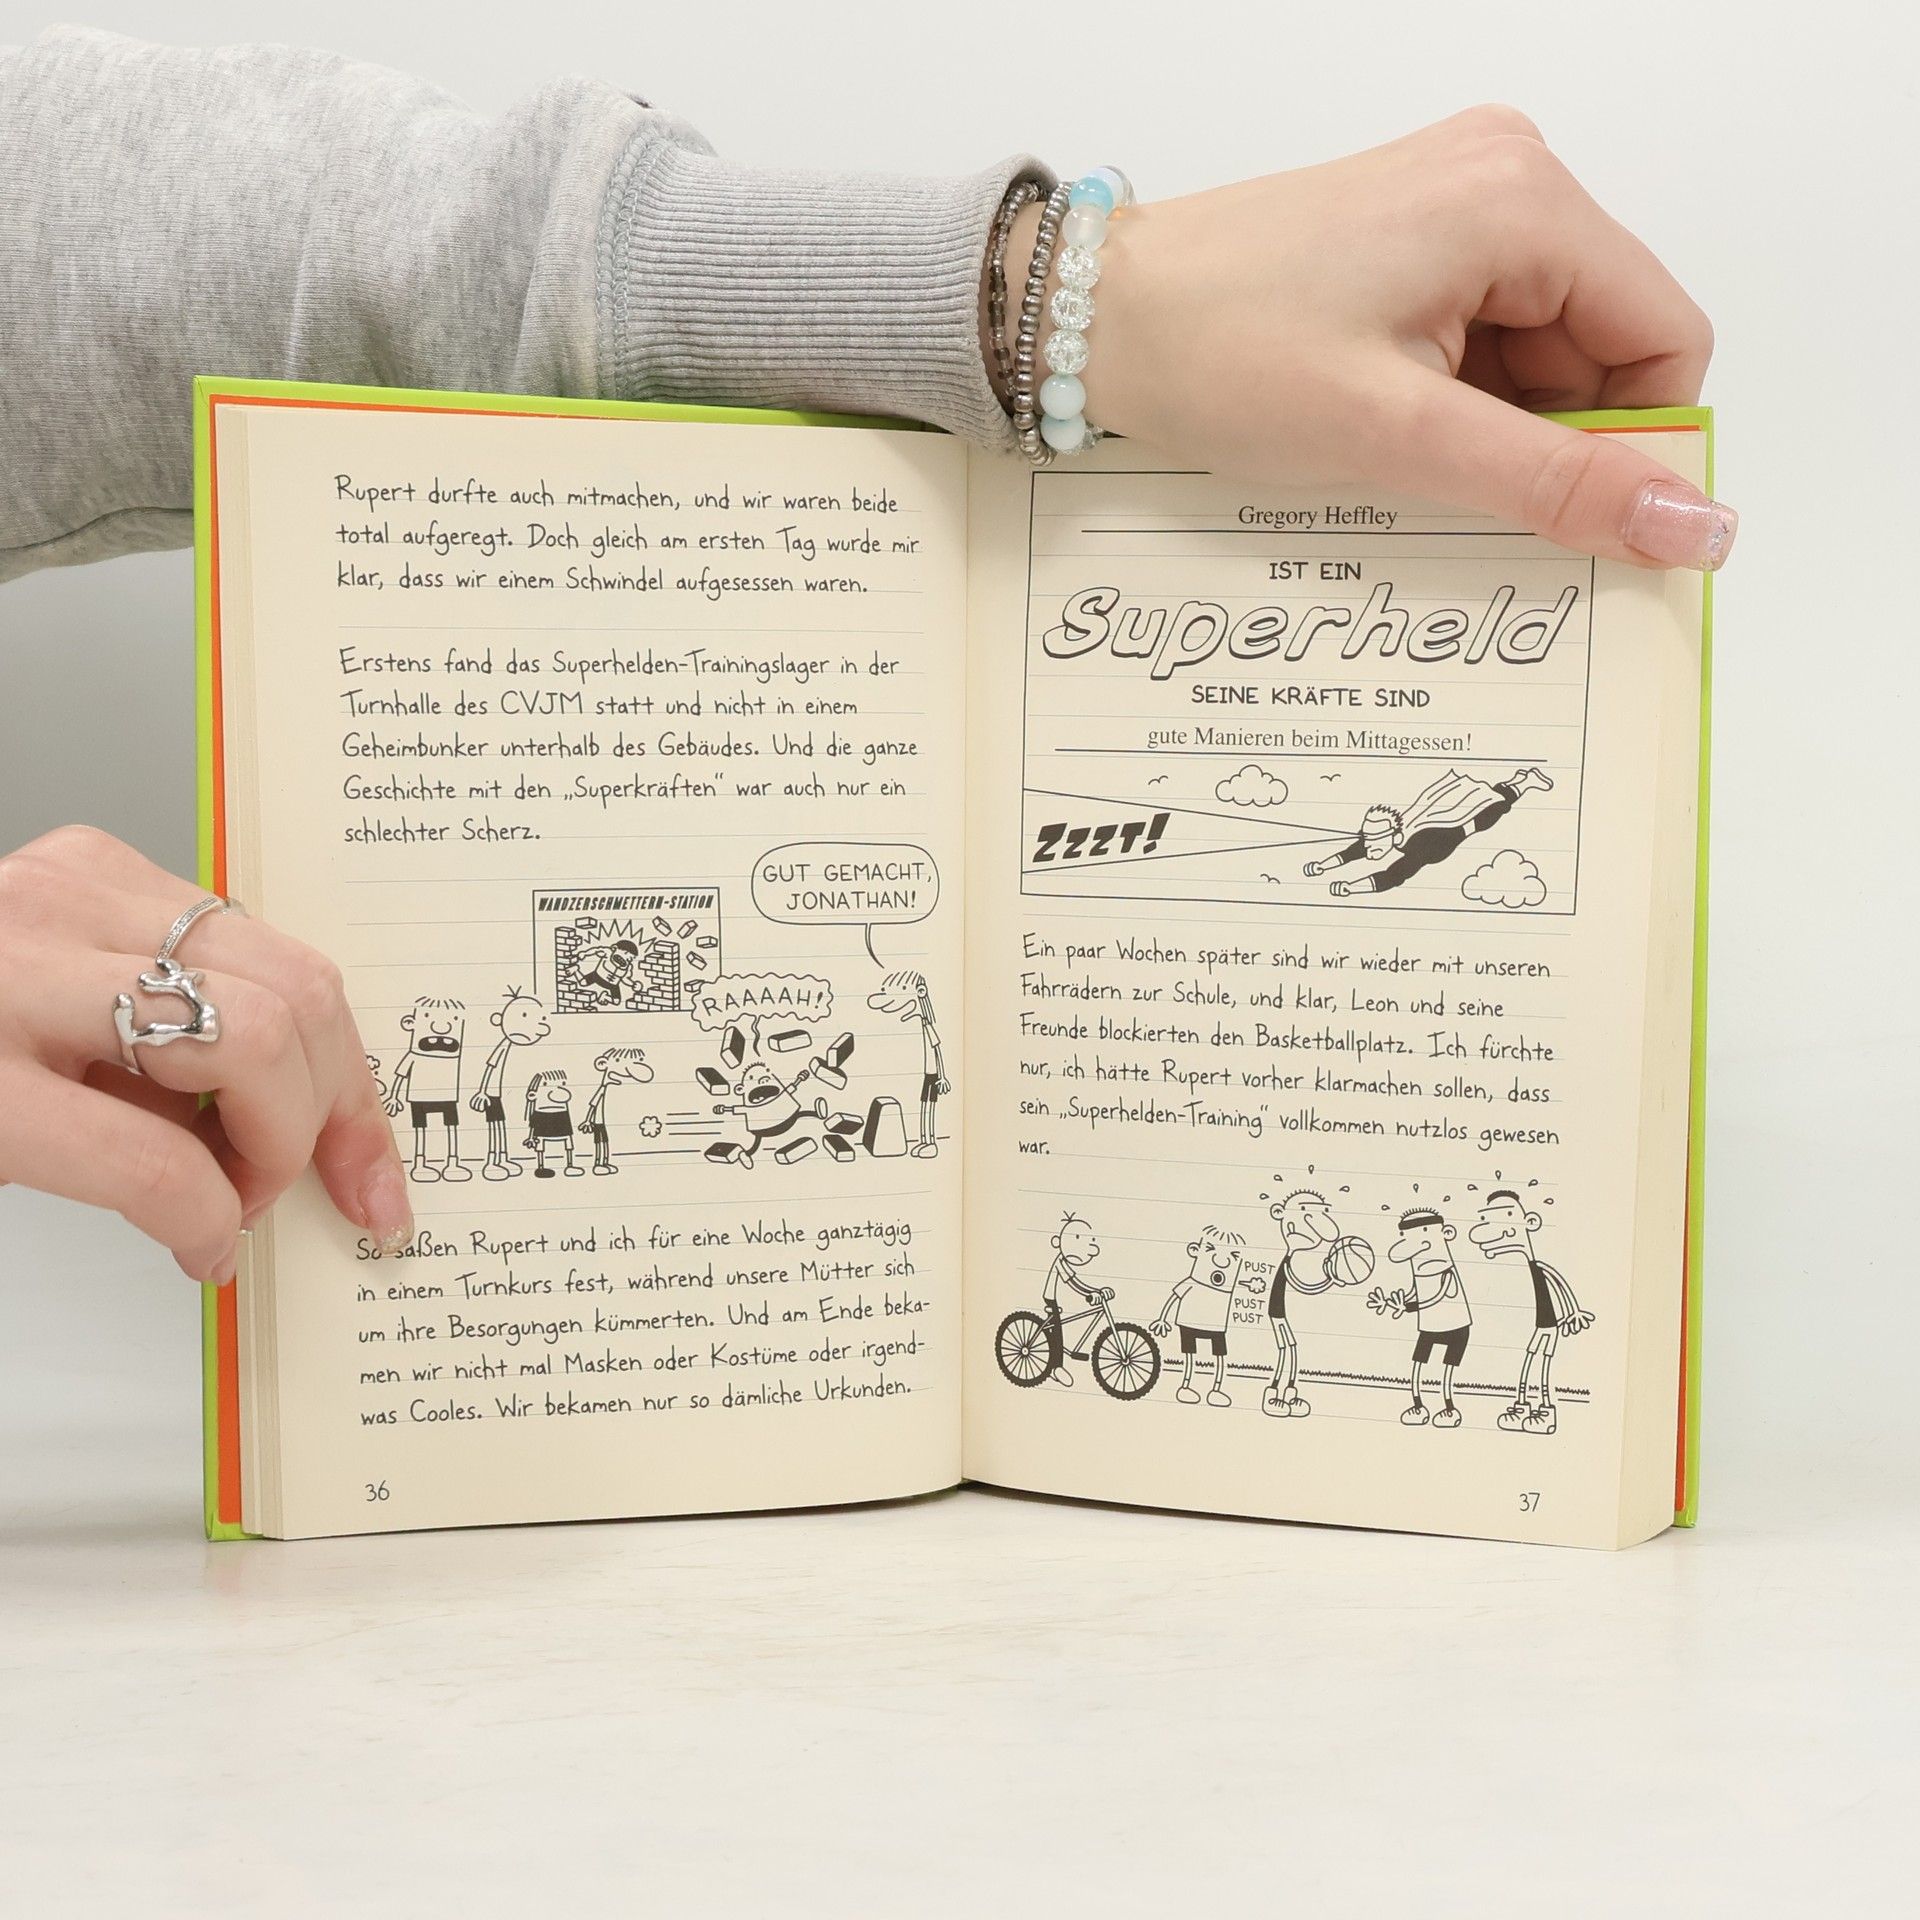 Rupert durfte auch mitmachen, und wir waren beide
total aufgeregt. Doch gleich am ersten Tag wurde mir
klar, dass wir einem Schwindel aufgesessen waren.
Erstens fand das Superhelden-Trainingslager in der
Turnhalle des CVJM statt und nicht in einem
Geheimbunker unterhalb des Gebäudes. Und die ganze
Geschichte mit den „Superkräften“ war auch nur ein
schlechter Scherz.
GUT GEMACHT,
JONATHAN!
WANDZERSCHMETTERN-STATION
RAAAAH!
So saßen Rupert und ich für eine Woche ganztägig
in einem Turnkurs fest, während unsere Mütter sich
um ihre Besorgungen kümmerten. Und am Ende beka-
men wir nicht mal Masken oder Kostüme oder irgend-
was Cooles. Wir bekamen nur so dämliche Urkunden.
36
Gregory Heffley
IST EIN
Superheld
SEINE KRÄFTE SIND
gute Manieren beim Mittagessen!
ZZZT!
Ein paar Wochen später sind wir wieder mit unseren
Fahrrädern zur Schule, und klar, Leon und seine
Freunde blockierten den Basketballplatz. Ich fürchte
nur, ich hätte Rupert vorher klarmachen sollen, dass
sein „Superhelden-Training“ vollkommen nutzlos gewesen
war.
PUST
PUST
PUST
37